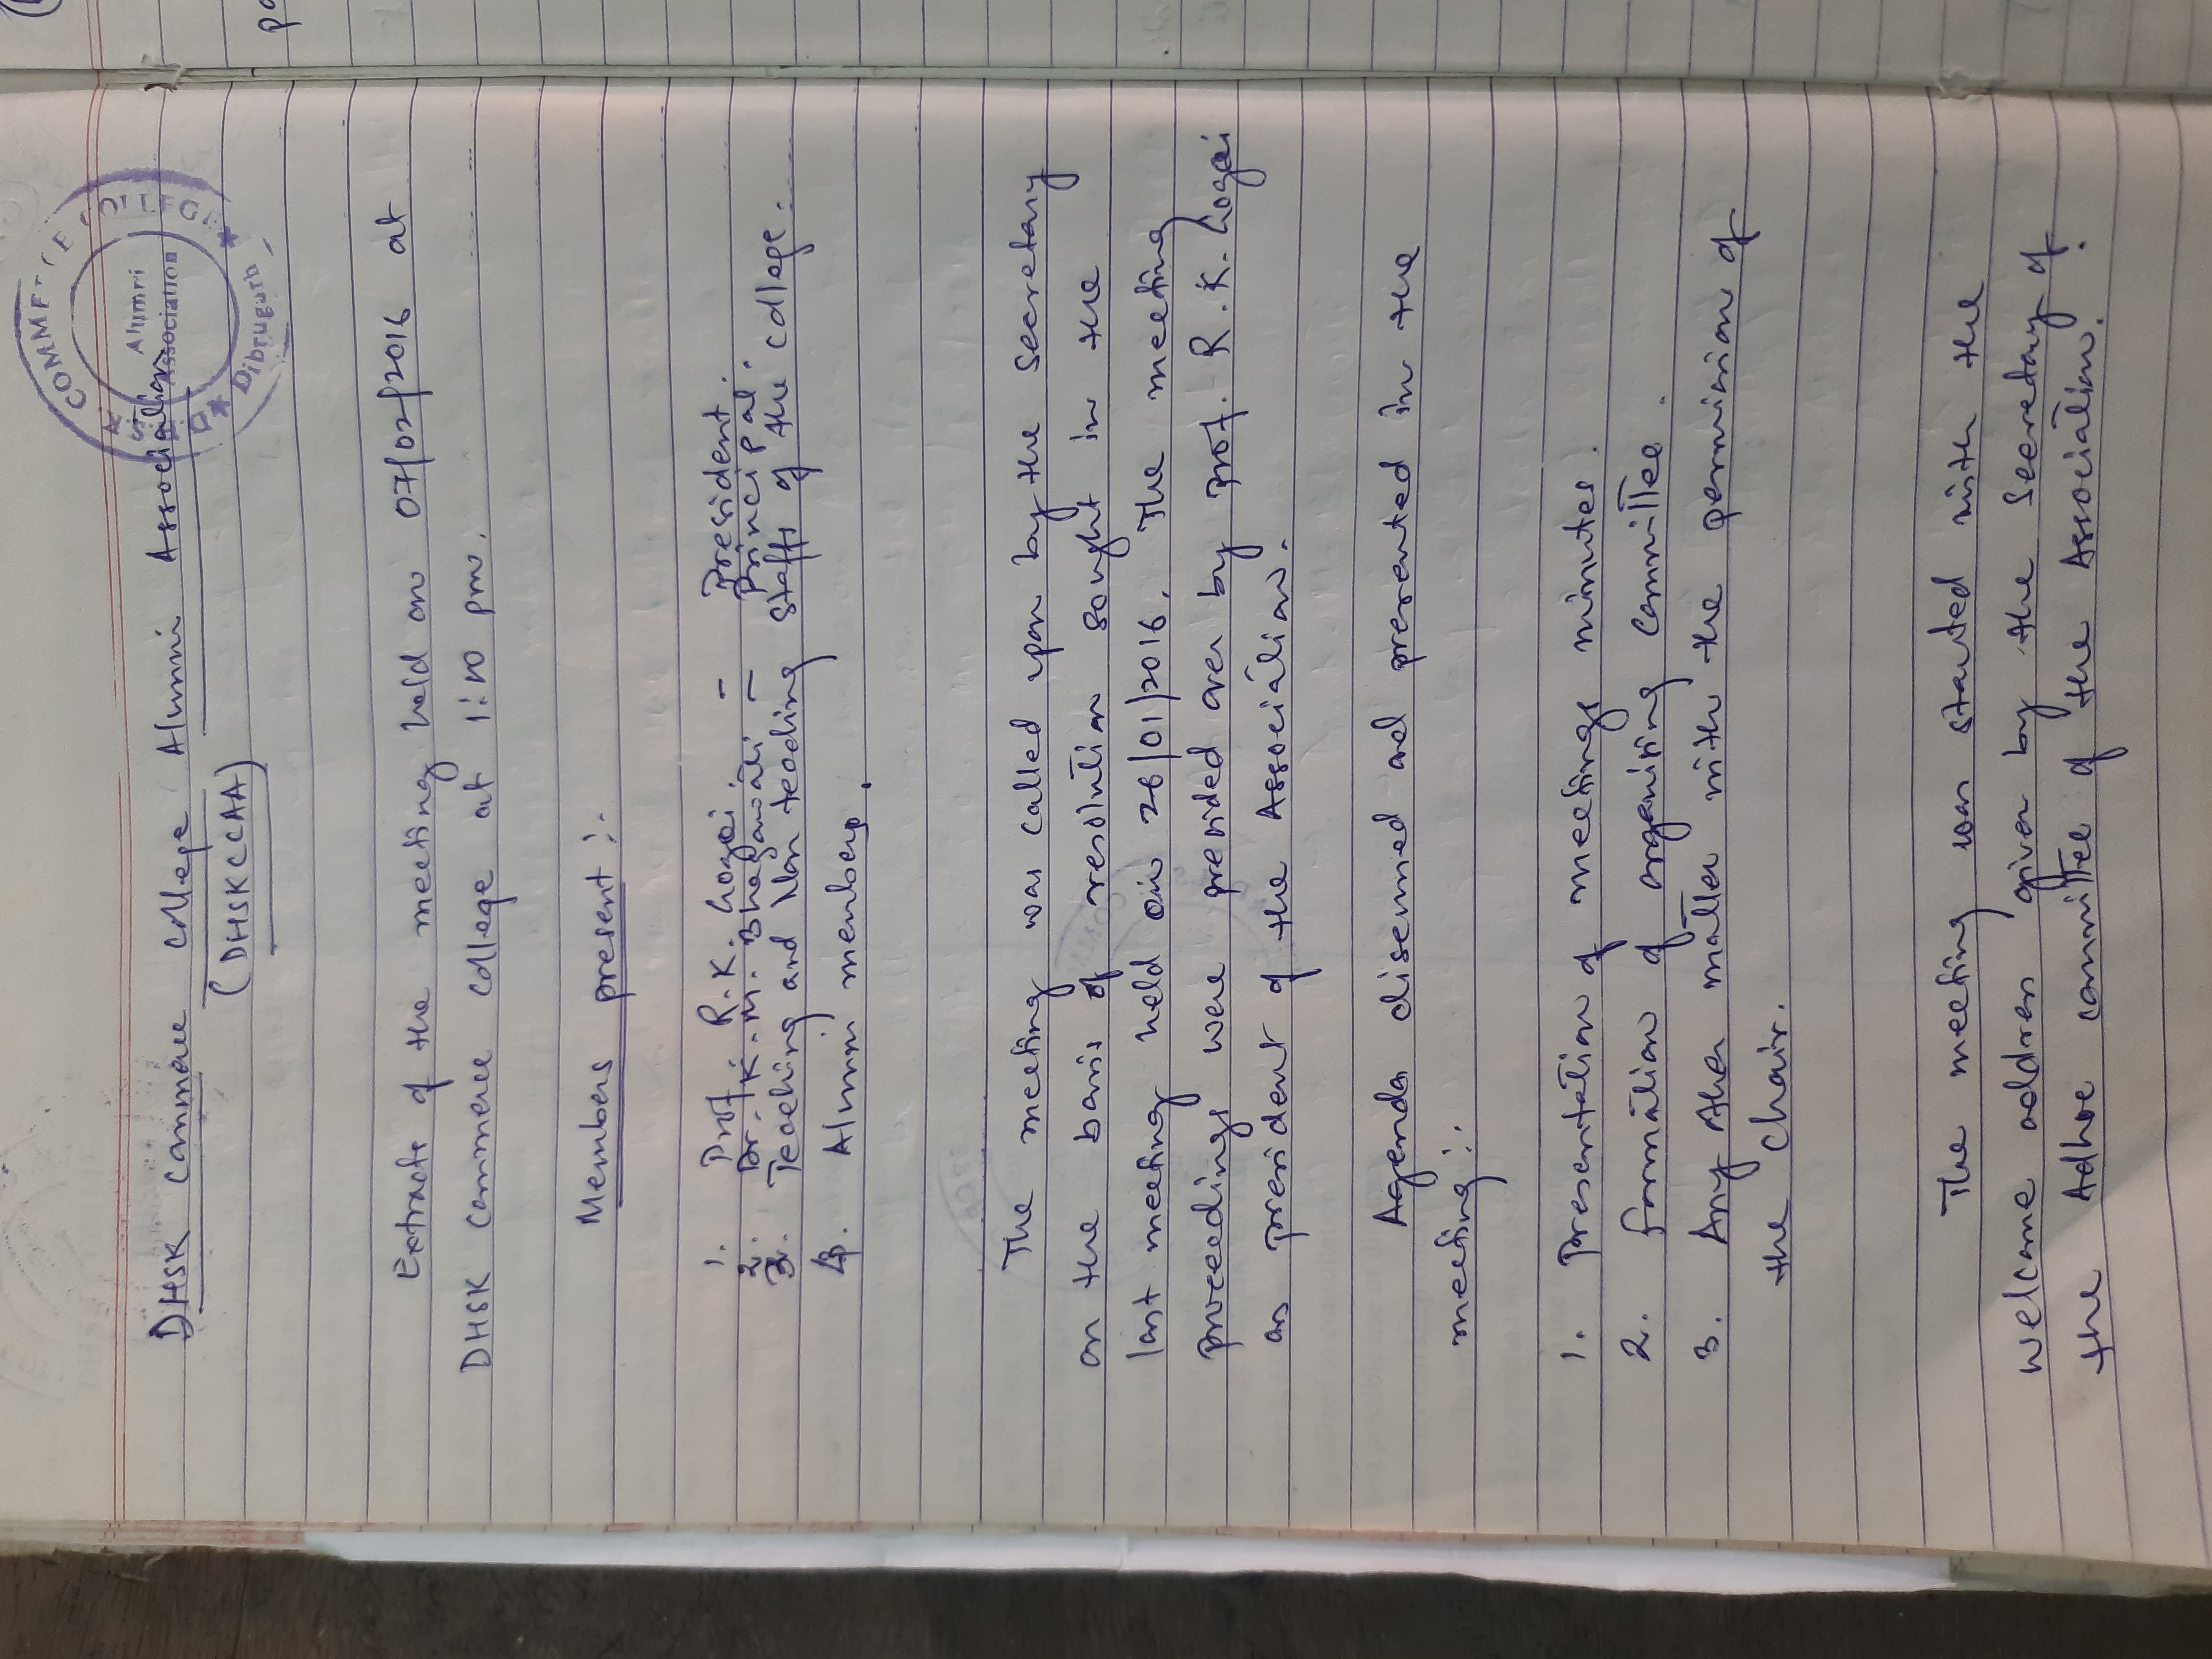 DHSK Commerce College Alumni Association
(DHSKCCAA)
COMMERCE COLLEGE
Alumni
Association
Dibrugarh
Extracts of the meeting held on 07/02/2016 at
DHSK Commerce College at 1:10 pm.
Members present :-
1. Prof. R.K. Gogoi - President.
2. Dr. K.M. Bhagawati - Principal.
3. Teaching and Non teaching staffs of the College.
4. Alumni members.
The meeting was called upon by the Secretary
on the basis of resolution sought in the
last meeting held on 26/01/2016. The meeting
proceedings were presided over by prof. R.K. Gogoi
as president of the Association.
Agenda discussed and presented in the
meeting :-
1. Presentation of meetings minutes.
2. Formation of organising Committee.
3. Any other matter with the permission of
the Chair.
The meeting was started with the
welcome address given by the Secretary of
the Adhoc committee of the Association.